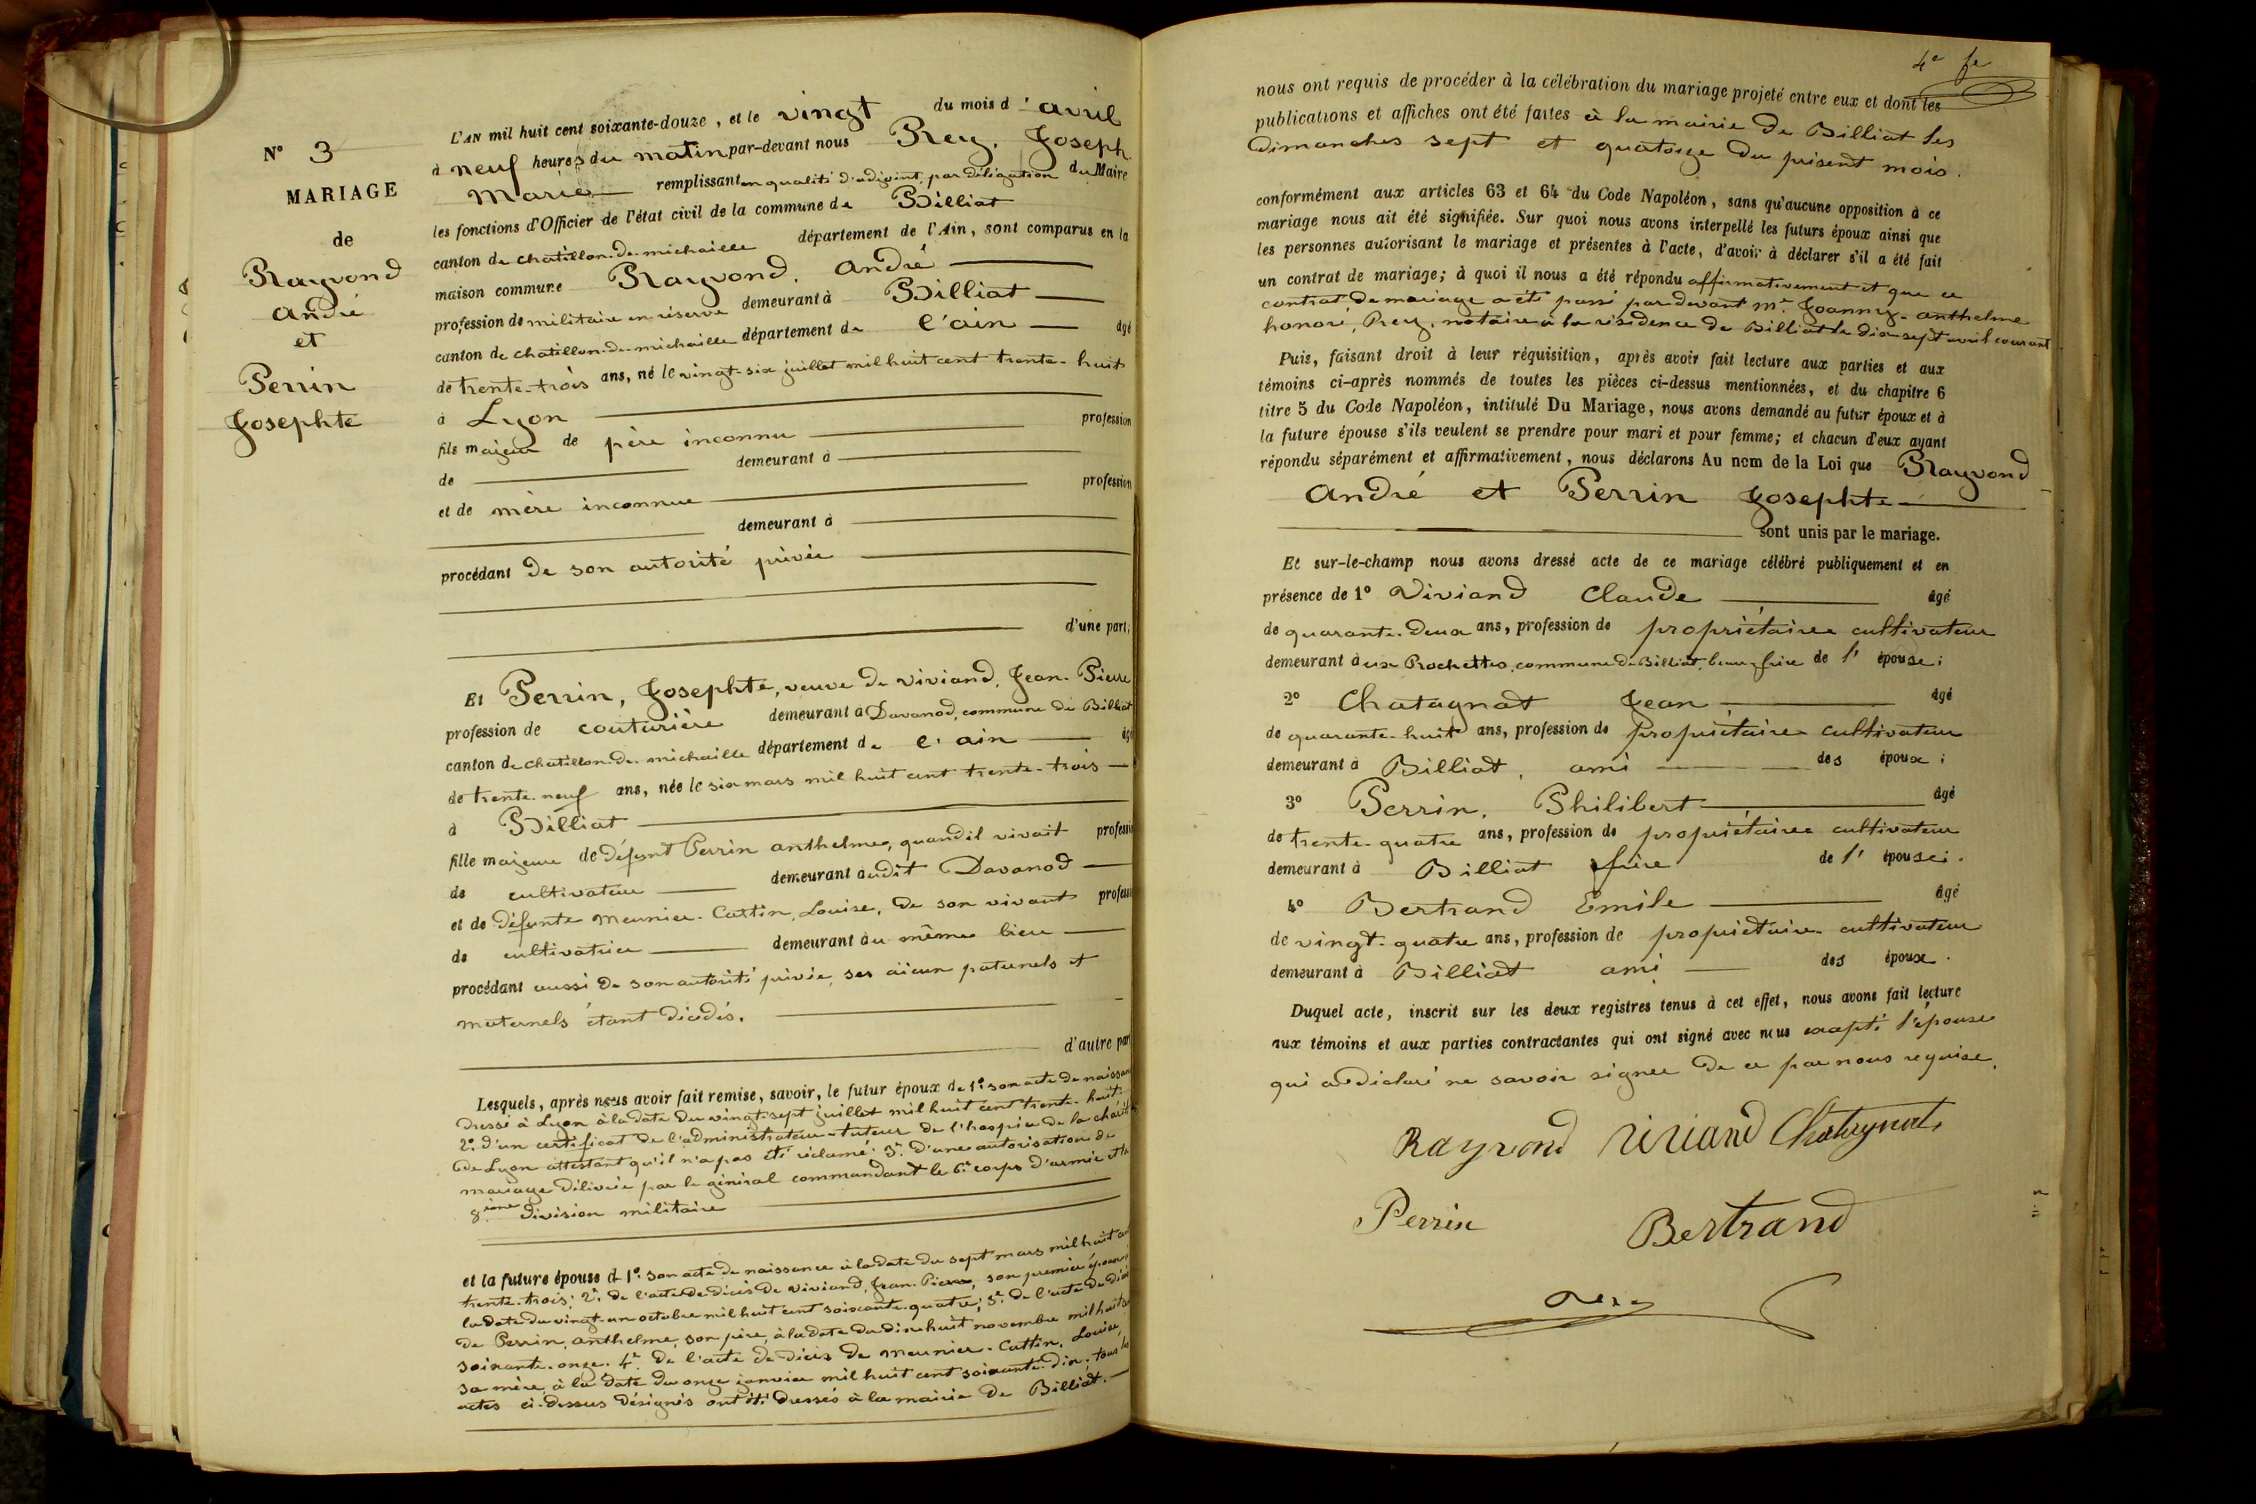 N° 3
MARIAGE
de
Rayvond
André
et
Perrin
Josephte
L'AN mil huit cent soixante-douze, et le vingt du mois d'avril
à neuf heures du matin par-devant nous Rey, Joseph
Marie remplissant en qualité d'adjoint, par délégation du Maire
les fonctions d'Officier de l'état civil de la commune de Billiat
canton de chatillon-de-michaille département de l'Ain, sont comparus en la
maison commune Rayvond, André
profession de militaire en réserve demeurant à Billiat
canton de chatillon-de-michaille département de l'ain âgé
de trente-trois ans, né le vingt-six juillet mil huit cent trente-huit
à Lyon
fils majeur de père inconnu profession
de demeurant à
et de mère inconnue profession
demeurant à
procédant de son autorité privée
d'une part;
Et Perrin, Josephte, veuve de viviand, Jean-Pierre
profession de couturière demeurant à Davanod, commune de Billiat
canton de chatillon-de-michaille département de l'ain âgé
de trente-neuf ans, née le six mars mil huit cent trente-trois
à Billiat
fille majeure de défunt Perrin anthelme, quand il vivait professi
de cultivateur demeurant audit Davanod
et de défunte Meunier-Cattin, Louise, de son vivant profess
de cultivatrice demeurant au même lieu
procédant aussi de son autorité privée, ses aïeux paternels et
maternels étant décédés.
d'autre part
Lesquels, après nous avoir fait remise, savoir, le futur époux de 1° son acte de naissance
dressé à Lyon à la date du vingt-sept juillet mil huit cent trente-huit
2° d'un certificat de l'administrateur-tuteur de l'hospice de la charité
de Lyon attestant qu'il n'a pas été réclamé; 3° d'une autorisation de
mariage délivrée par le général commandant le 6e corps d'armée et la
8ième division militaire
et la future épouse d 1° son acte de naissance à la date du sept mars mil huit cent
trente-trois; 2° de l'acte de décès de Viviand, Jean-Pierre, son premier époux, à
la date du vingt-un octobre mil huit cent soixante-quatre; 3° de l'acte de décès
de Perrin, anthelme, son père, à la date du dix-huit novembre mil huit cent
soixante-onze. 4° de l'acte de décès de Meunier-Cattin, Louise,
sa mère, à la date du onze janvier mil huit cent soixante-dix; tous les
actes ci-dessus désignés ont été dressés à la mairie de Billiat.
4e fe
nous ont requis de procéder à la célébration du mariage projeté entre eux et dont les
publications et affiches ont été faites à la mairie de Billiat les
dimanches sept et quatorze du présent mois.
conformément aux articles 63 et 64 du Code Napoléon, sans qu'aucune opposition à ce
mariage nous ait été signifiée. Sur quoi nous avons interpellé les futurs époux ainsi que
les personnes autorisant le mariage et présentes à l'acte, d'avoir à déclarer s'il a été fait
un contrat de mariage; à quoi il nous a été répondu affirmativement et que ce
contrat de mariage a été passé par devant Me Joanny-anthelme
honoré, Rey, notaire à la résidence de Billiat le dix-sept avril courant
Puis, faisant droit à leur réquisition, après avoir fait lecture aux parties et aux
témoins ci-après nommés de toutes les pièces ci-dessus mentionnées, et du chapitre 6
titre 5 du Code Napoléon, intitulé Du Mariage, nous avons demandé au futur époux et à
la future épouse s'ils veulent se prendre pour mari et pour femme; et chacun d'eux ayant
répondu séparément et affirmativement, nous déclarons Au nom de la Loi que Rayvond
André et Perrin Josephte
sont unis par le mariage.
Et sur-le-champ nous avons dressé acte de ce mariage célébré publiquement et en
présence de 1° Viviand Claude âgé
de quarante-deux ans, profession de propriétaire cultivateur
demeurant aux Rochettes, commune de Billiat, beau-frère de l'épouse;
2° Chatagnat Jean âgé
de quarante-huit ans, profession de propriétaire cultivateur
demeurant à Billiat, ami des époux;
3° Perrin, Philibert âgé
de trente-quatre ans, profession de propriétaire cultivateur
demeurant à Billiat frère de l'épouse;
4° Bertrand Emile âgé
de vingt-quatre ans, profession de propriétaire cultivateur
demeurant à Billiat ami des époux.
Duquel acte, inscrit sur les deux registres tenus à cet effet, nous avons fait lecture
aux témoins et aux parties contractantes qui ont signé avec nous excepté l'épouse
qui a déclaré ne savoir signer de ce par nous requise.
Rayvond Viviand Chatagnat
Perrin Bertrand
Rey